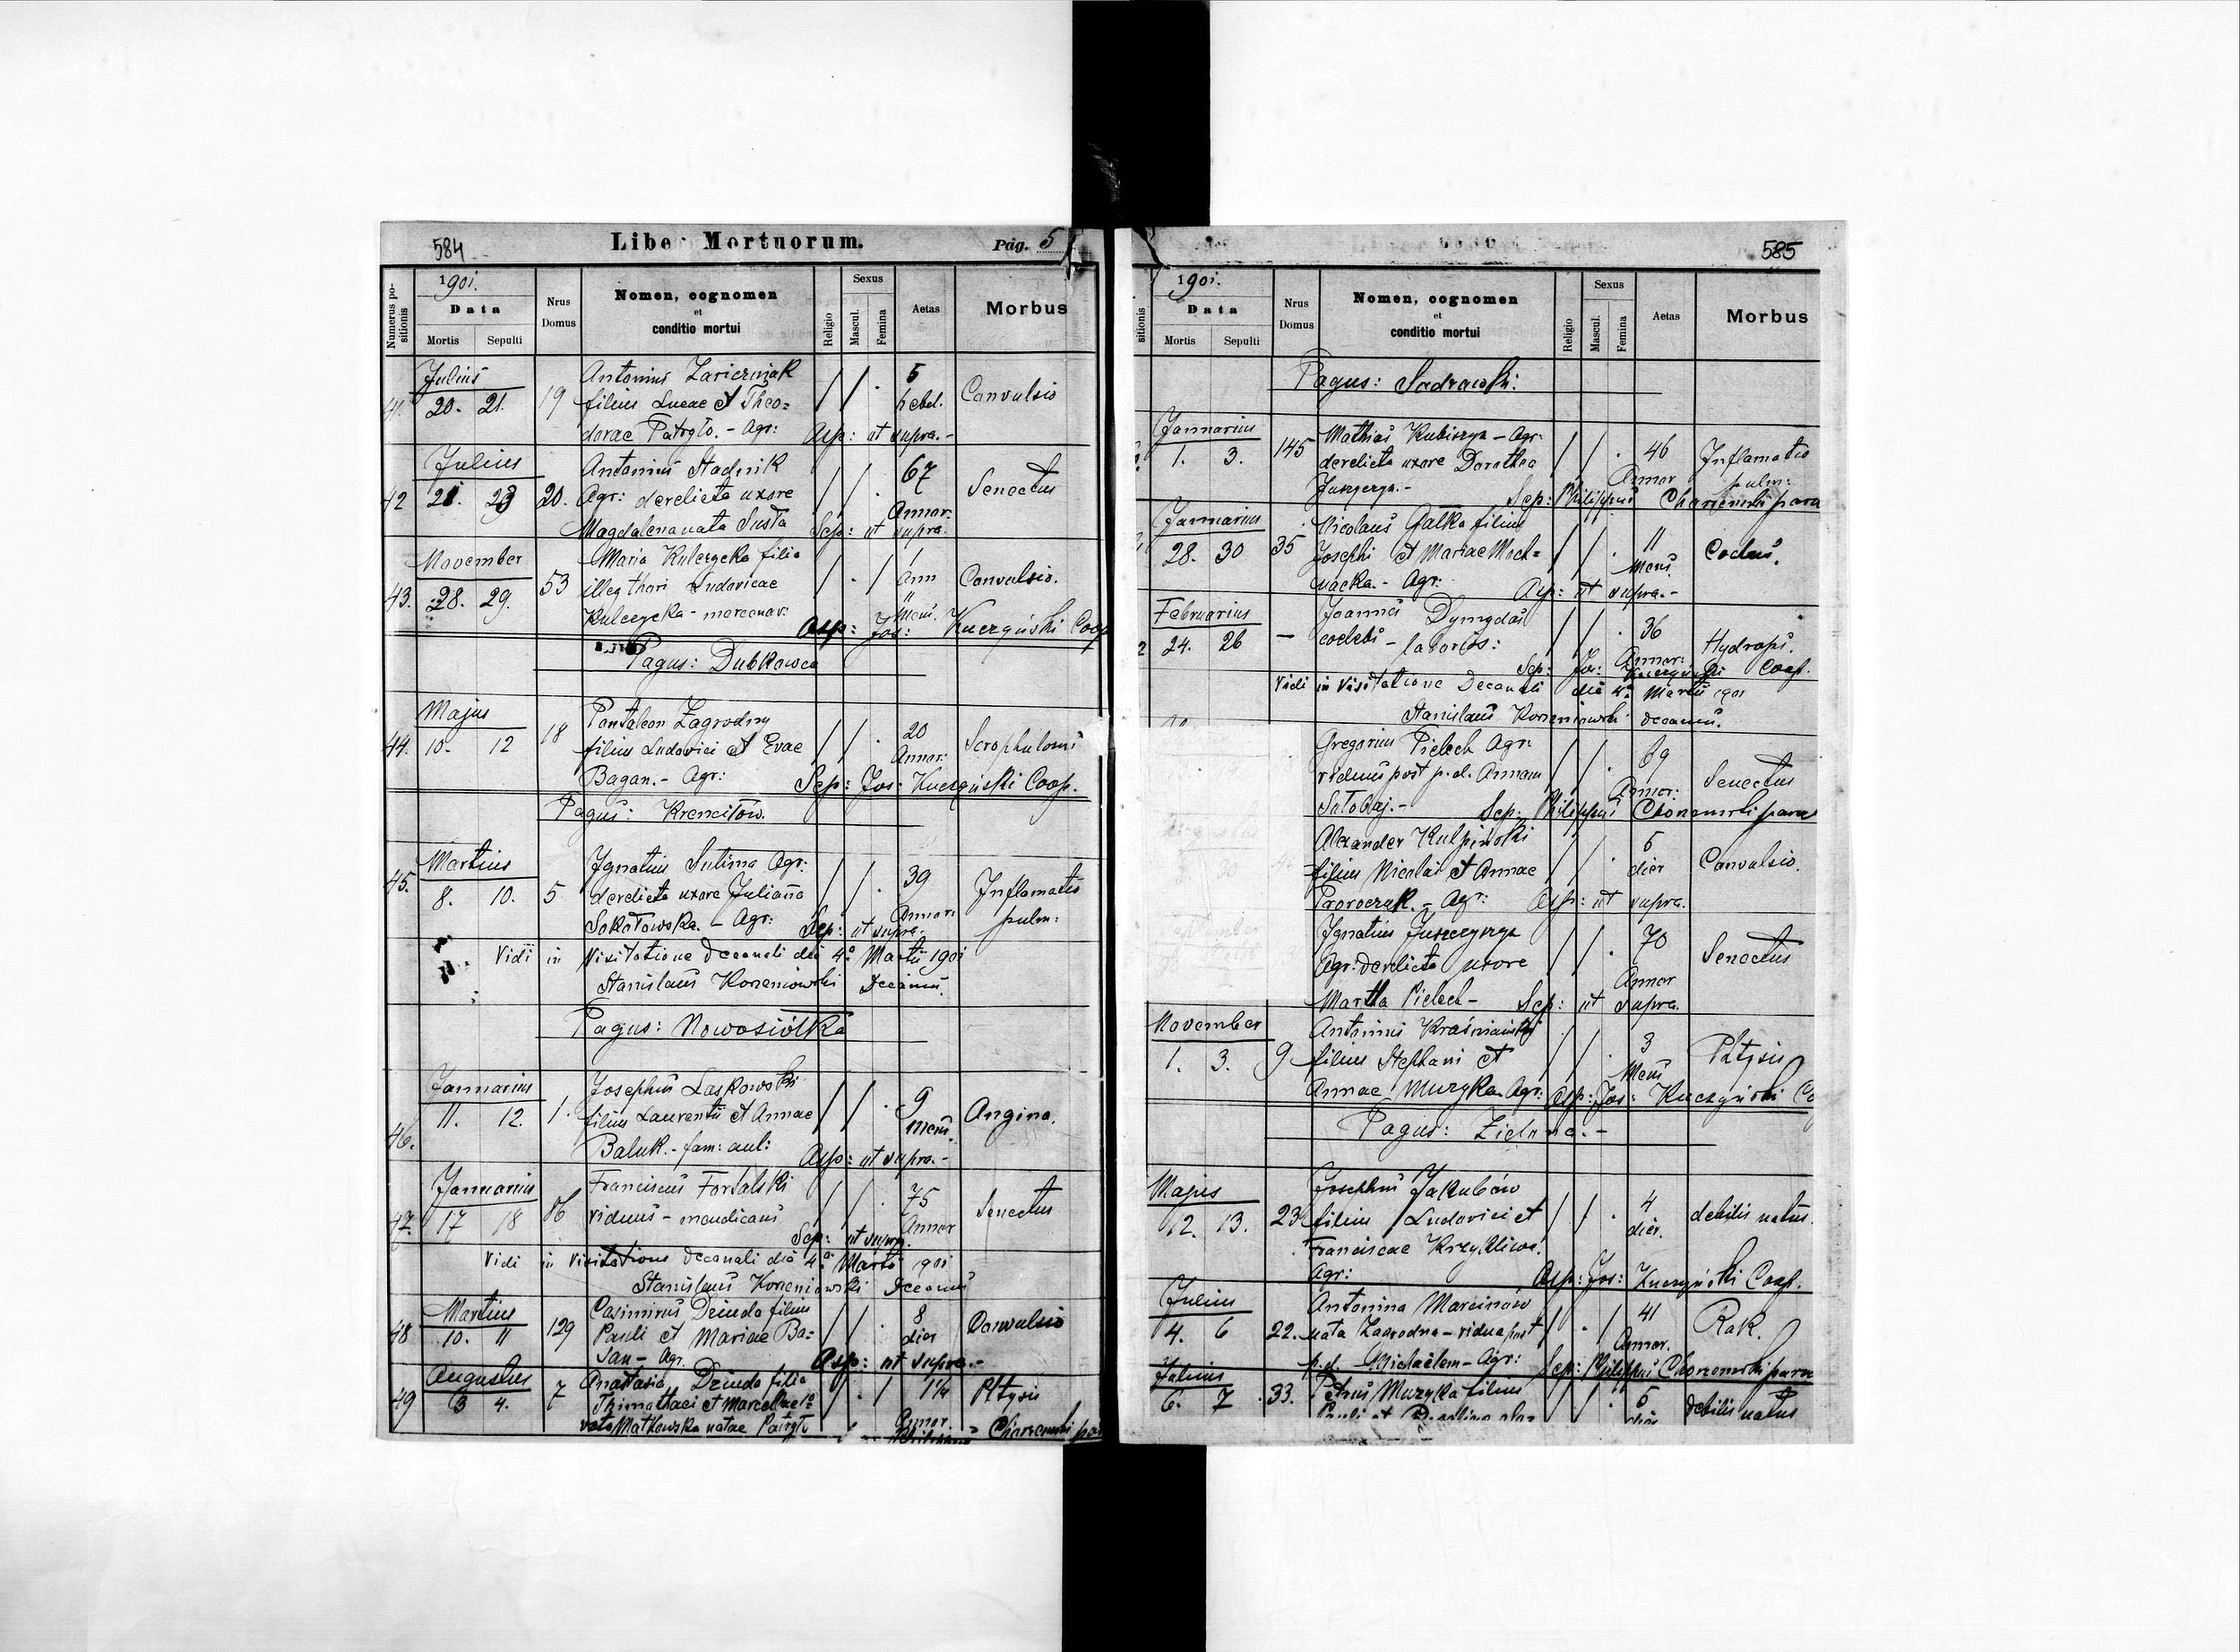 584
Liber Mortuorum.
Pag. 5
Numerus positionis
1901.
Data
Mortis
Sepulti
Nrus Domus
Nomen, cognomen
et
conditio mortui
Religio
Sexus
Mascul.
Femina
Aetas
Morbus
Julius
41. 20. 21. 19
Antonius
filius Lucae et Theo=
dorae Patryło. - Agr:
5
hebd.
Convulsio
Asp: ut supra. -
Julius
42 21. 23 20.
Antonius Stadnik
Agr: derelicta uxore
Magdalena nata Susła
67
Annor.
Senectus
Sep: ut supra.
November
43. 28. 29. 53
Maria Kulczycka filia
illeg thori Ludovicae
Kulczycka - mercenar:
1
Ann
11
Mens.
Convulsio.
Asp: Jos: Kuczyński Coop
Pagus: Dubkowce
Majus
44. 10. 12 18
Pantaleon Zagrodny
filius Ludovici et Evae
Bagan. - Agr:
20
Annor:
Sep: Jos: Kuczyński Coop.
Pagus: Krencitów.
Martius
45. 8. 10. 5
Ignatius Sulima Agr:
derelicta uxore Julianna
Sokołowska. - Agr:
39
Annor:
Inflamatio
pulm:
Sep: ut supra.
Vidi in Visitatione Decanali dia 4a Martii 1901
Stanislaus Korzeniowski Decanus.
Pagus: Nowosiółka
Januarius
46. 11. 12. 1.
Josephus Laskowski
filius Laurentii et Annae
Baluk. - fam: aul:
9
Mens.
Angina.
Asp: ut supra. -
Januarius
47. 17 18 86
Franciscus
viduus - mendicans
75
Annor
Senectus
Sep: ut supra.
Vidi in Visitatione Decanali dia 4a Martii 1901
Stanislaus Korzeniowski Decanus
Martius
48 10. 11 129
Casimirus Dziuda filius
Pauli et Mariae Ba=
San - Agr.
8
dier
Convulsio
Asp: ut supra. -
Augustus
49 3 4. 7
Anastasia Dziuda filia
Thimothaei et Marcellae
Matkowska natae Patryło
1¼
Annor.
Phtysis
585
1901.
Data
Mortis
Sepulti
Nrus Domus
Nomen, cognomen
et
conditio mortui
Religio
Sexus
Mascul.
Femina
Aetas
Morbus
Pagus: Sadzawki:
Januarius
1. 3. 145
Mathias Kubiszyn - Agr:
derelicta uxore Dorothea
46
Annor
Inflamatio
pulm:
Sep: Philippus
Januarius
28. 30 35
Nicolaus Gałka filius
Josephi et Mariae Moch=
nacka. - Agr:
11
Mens.
Asp: ut supra. -
Februarius
24. 26 -
Joannes Dymydas
coelebs - laborios:
36
Annor:
Hydrops.
Sep: Jos: Kuczyński Coop.
Vidi in Visitatione Decanali dia 4a Martii 1901
Stanislaus Korzeniowski Decanus.
Gregorius Pielech Agr:
viduus post p. d. Annam
69
Annor:
Senectus
Sep: Philippus
Alexander Kulpiński
filius Nicolai et Annae
Proroczuk. - Agr:
5
dier
Convulsio.
Asp: ut supra.
Ignatius Juszczyszyn
Agr: derelicta uxore
Martha Pielech -
70
Annor
Senectus
Sep: ut supra.
November
1. 3. 9
Antonius
filius Stephani et
Annae Muzyka. Agr:
3
Mens
Phtysis
Asp: Jos: Kuczyński Co
Pagus: Zielona. -
Majus
12. 13. 23
Josephus Jakubów
filius Ludovici et
Franciscae Krzykliwa.
Agr:
4
dier.
debilis natus.
Asp: Jos: Kuczyński Coop.
Julius
4. 6 22.
Antonina Marcinów
nata Zagrodna - vidua post
p. d. Michaelem - Agr:
41
Annor.
Rak.
Sep: Philippus
Julius
6. 7 33.
Petrus Muzyka filius
5
debilis natus